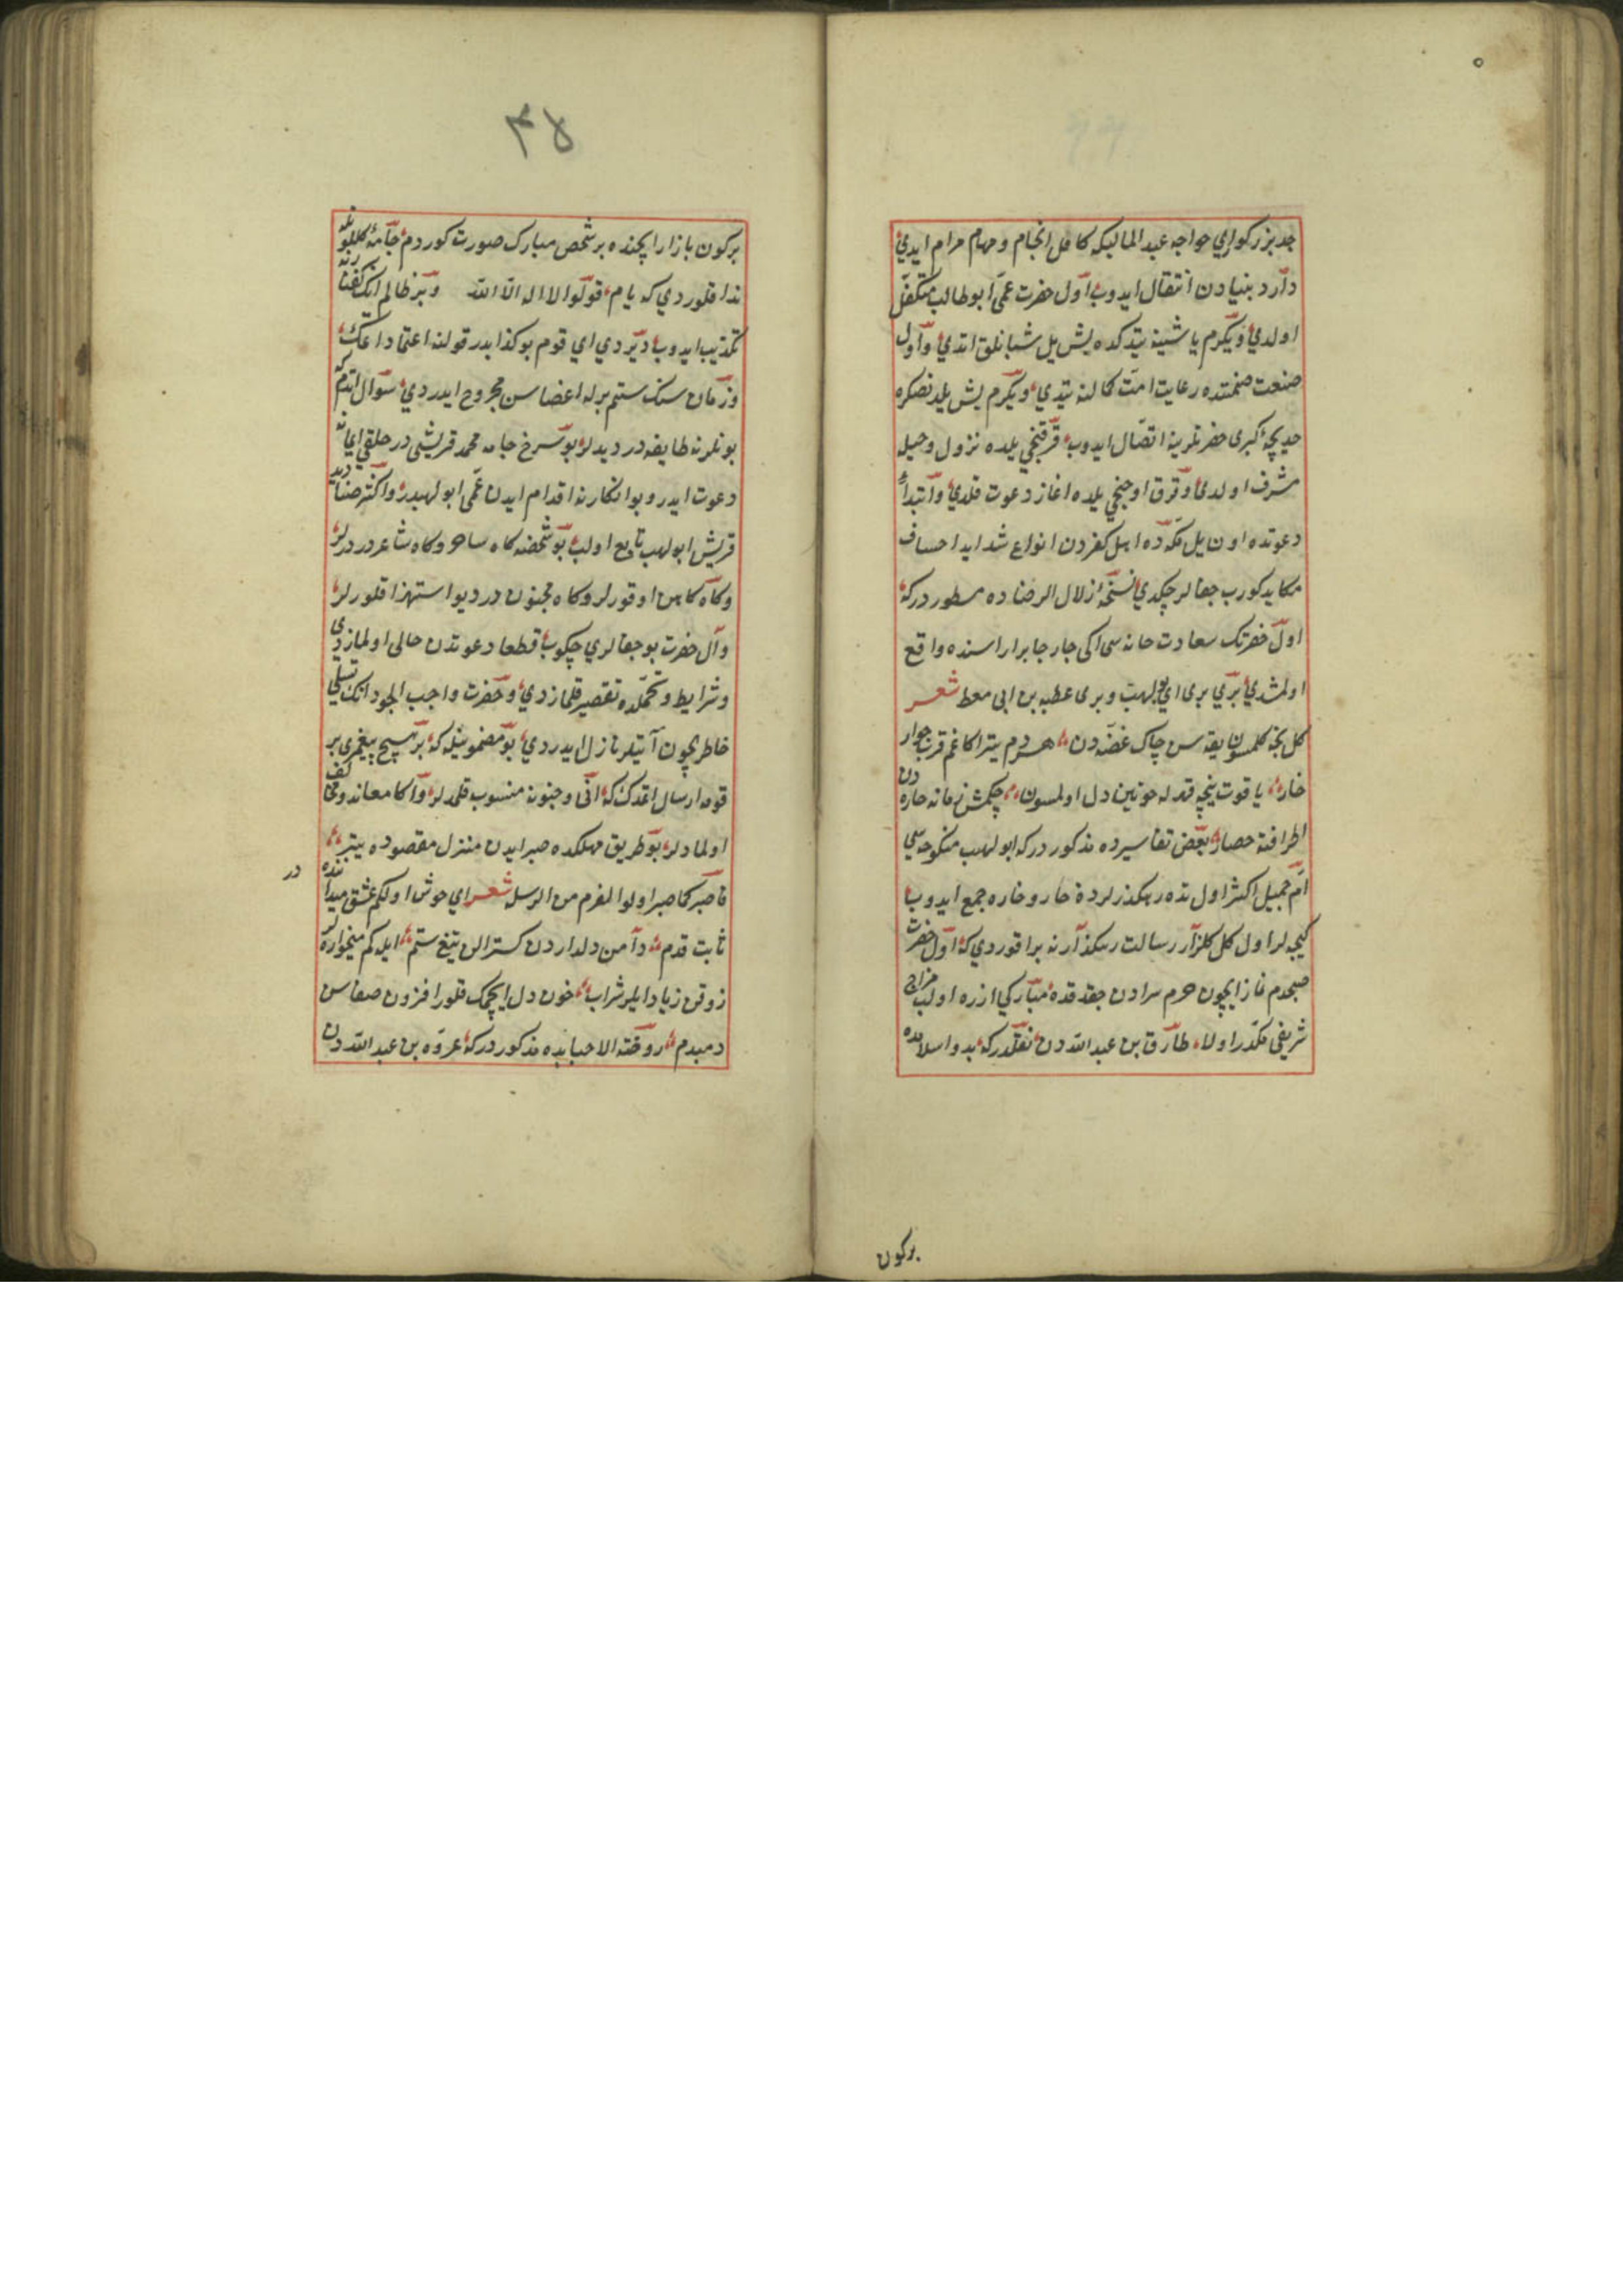 جد بزرکواري خواجه عبد المالیکه کافل انجام و مهام مرام ایدي
دار دنیادن انتقال ایدوب اول حضرت عمّی ابو طالب متکفل
اولدي ویکرم یاشینه یتدکده یش ییل شبانلق اتدي واول
صنعت ضمننده رعایت امت کمالنه یتدي ویکرم یش یلدنصکره
خدیجهٔ کبری حضرتلرینه اتصال ایدوب قرقنجي یلده نزول وحیله
مشرف اولدي وقرق اوجنجي یلده اغاز دعوت قلدي وابتداءٔ
دعوتده اون یل مکّه ده اهل کفردن انواع شداید احساف
مکاید کورب جفالر چکدي نسخهٔ زلال الرضاده مسطوردرکه
اول حضرتک سعادت خانه سی اکی جار جابر اراسنده واقع
اولمشدي بري بری ابو لهب وبری عطبه بن ابی معط شعر
کل بکه کلمسون یقه سن چاک غصّه دن هردم یتراکا غم قرب جوار
خار یا قوت ینجه قدله خونین دل اولمسون چکمش زمانه خاره دن
اطرافنه حصار بعض تفاسیرده مذکوردرکه ابو لهب منکوحه سي
امّ جمیل اکثر اول ده رهکذرلرده خار و خاره جمع ایدوب
کیجه لر اول کل کلزار رسالت رهکذارنه براقوردي که اول حضرت
صبحدم نماز ایچون حرم سرادن چقدقده مبارکي ازره اولب مزاج
شریفی مکدّر اولا طارق بن عبد الله دن نقلدرکه بدو اسلامده
برکون
۴۸
برکون بازار ایچنده بر شخص مبارک صورت کوردم جامهٔ کلکونله
ندا قلوردي که یام قولوا لا اله الّا الله وبر ظالم انک کفتارنه
تکذیب ایدوب دیردي اي قوم بو کذابدر قولنه اعتماد اتمک
وزمان سنک ستم برله اعضاسن مجروح ایدردي سوال اتدم که
بونلر نه طایفه در دیدلر بو سرخ جامه محمد قریشی در خلقي ایمانه
دعوت ایدر وبو انکارنه اقدام ایدن عمّی ابو لهبدر واکثر صنادید
قریش ابو لهب تابع اولب بو شخصه کاه ساحر وکاه شاعردر درلر
وکاه کاهن اوقورلر وکاه مجنون در دیو استهزا قلورلر
وآل حضرت بو جفالري چکوب قطعا دعوتدن خالی اولمازدي
وشرایط وتحملده تقصیر قلمازدي وحضرت واجب الجود انک تسلي
خاطریچون آیتلر نازل ایدردي بو مضمونیله که بر هیچ پیغمبری بر
قومه ارسال اتمدک که انی وجنونه منسوب قلمدلر واکا معاند ومخالف
اولمادلر بو طریق مهلکده صبر ایدن منزل مقصوده یتر
فاصبر کما صبر اولوا العزم من الرسل شعر اي خوش اولکم عشق میداننده در
ثابت قدم دامن دلداردن کسترالن تیغ ستم ایله کم میخواره لر
زوقن زیاد ایلر شراب خون دل ایچمک قلور افزون صفاسن
دمبدم روضة الاحبابده مذکوردرکه عروه بن عبد الله دن